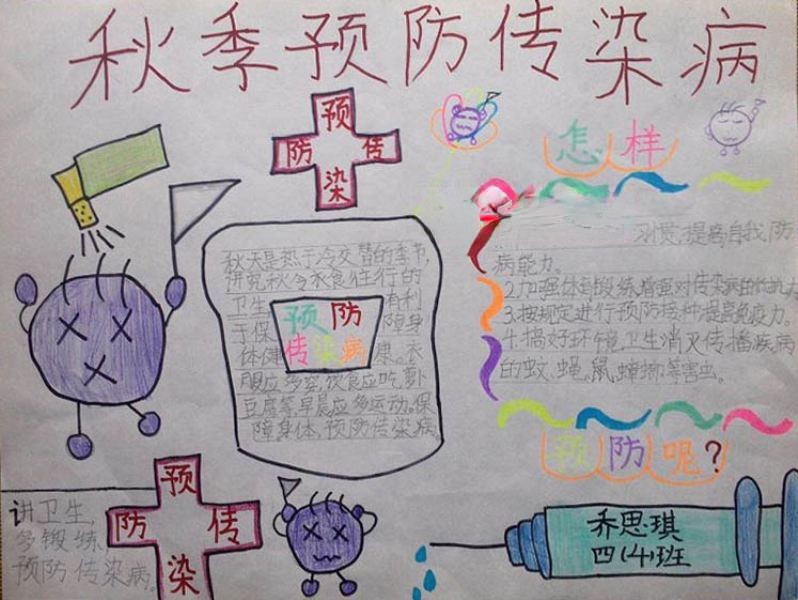 秋季预防传染病
预
防 传
染
怎样
秋天是热于冷交替的季节,
讲究秋令衣食住行的
卫生 有利
于保 障身
体健 康。衣
服应多穿,饮食应吃萝卜
豆腐等,早晨应多运动。保
障身体,预防传染病。
预防
传染病
习惯,提高自我防
病能力。
2.加强体育锻炼,增强对传染病的抵抗力
3.按规定进行预防接种,提高免疫力。
4.搞好环境卫生消灭传播疾病
的蚊、蝇、鼠、蟑螂等害虫。
预防呢?
讲卫生,
多锻炼,
预防传染病。
预
防 传
染
乔思琪
四(4)班